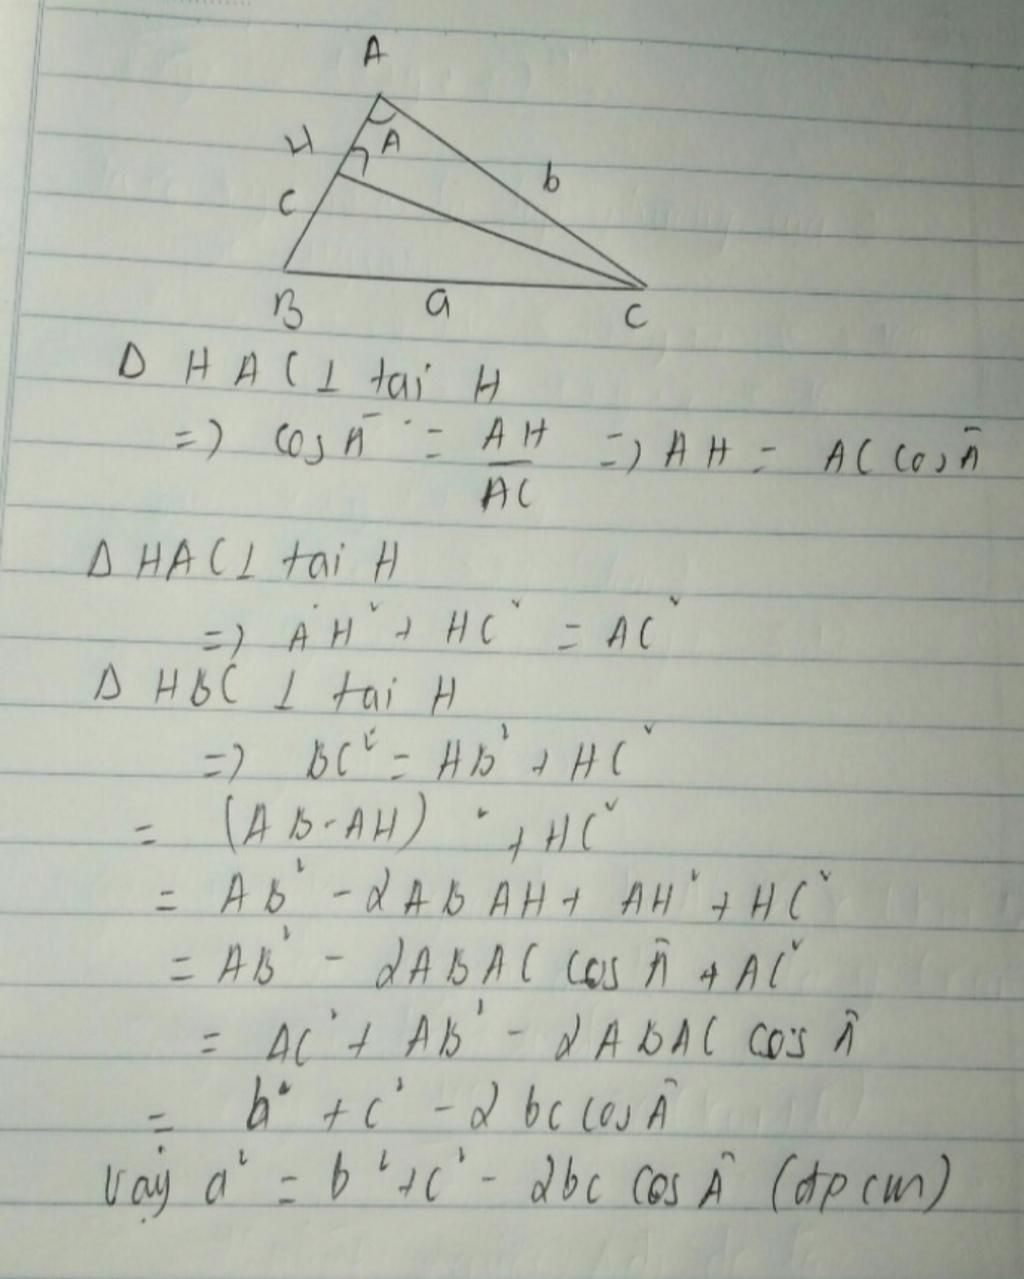 A
H
A
b
c
B
a
C
Δ HAC ⊥ tai H
=) cos Â = AH/AC =) AH = AC cos Â
Δ HAC ⊥ tai H
=) AH² + HC² = AC²
Δ HBC ⊥ tai H
=) BC² = HB² + HC²
= (AB-AH)² + HC²
= AB² - 2AB AH + AH² + HC²
= AB² - 2ABAC cos Â + AC²
= AC² + AB² - 2ABAC cos Â
= b² + c² - 2bc cos Â
Vậy a² = b² + c² - 2bc cos Â (đpcm)